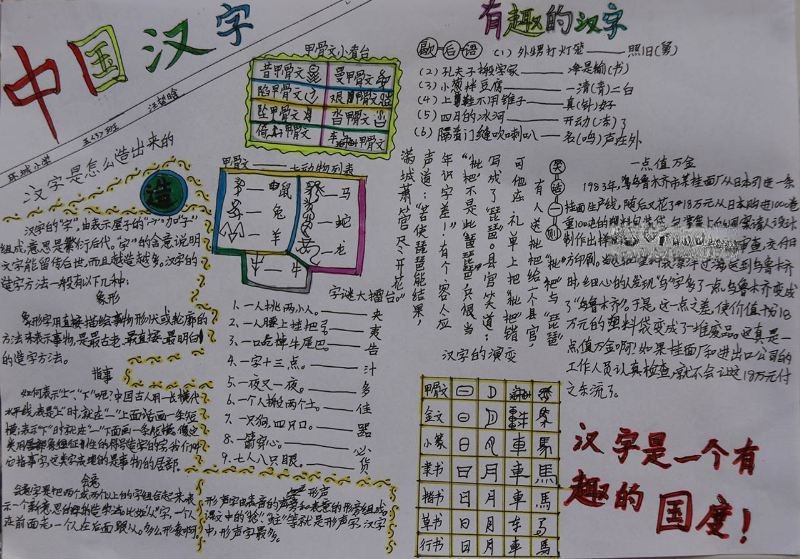 中国汉字
环城小学
汉字是怎么造出来的
造
汉字的"字",由表示屋子的"宀"加"子"
组成,意思是繁衍后代。"字"的含意说明
文字能留传后世,而且越造越多。汉字的
造字方法一般有以下几种:
象形
象形字用直接描绘事物形状或轮廓的
方法来表示事物,是最古老、最直接、最明白
的造字方法。
指事
如何表示"上""下"呢?中国古人用一长横代
会意
会意字是把两个或两个以上的字组合起来表
在前面走一个人在后面跟从。多么形象啊
甲骨文小看台
昔甲骨文
曼甲骨文
陷甲骨文
艰甲骨文
坠甲骨文
沓甲骨文
甲骨文——动物列表
鼠
马
兔
蛇
羊
龙
牛
字谜大擂台
1.一人挑两小人。——夹
2.一人腰上挂把弓——夷
3.一口咬掉牛尾巴——告
4.一字十三点。——汁
5.一夜又一夜。——多
6.一个人搬两个土。——佳
7.一只狗,四只口。——器
8.一箭穿心。——必
9.七人八只眼。——货
形声
形声字由表音的声旁和表意的形旁组成
等就是形声字,汉字
中,形声字最多。
有趣的汉字
歇后语
(1)外甥打灯笼——照旧(舅)
(2)孔夫子搬学家——净是输(书)
(3)小葱拌豆腐——一清(青)二白
(4)上鞋不用锥子——真(针)好
(5)四月的冰河——开动(冻)了
(6)隔着门缝吹喇叭——名(鸣)声在外
笑话一则
有人送枇杷给一个县官
可他在礼单上把枇杷错
写成了"琵琶"。县官笑道:
"枇杷不是此琵琶,只恨当
年识字差!"有个客人应
声道:"若使琵琶能结果,
满城萧管尽开花。"
汉字的演变
甲骨文
金文
小篆
隶书 日 月 車 馬
楷书 日 月 車 馬
草书
行书 日 月 車 馬
一点值万金
1983年,乌鲁木齐市某挂面厂从日本引进一条
挂面生产线,随后又花了18万元从日本购进1000卷
重10吨的塑料包装袋。
时,细心的人发现"乌"字多了一点,乌鲁木齐变成
了"鸟鲁木齐"。于是,这一点之差,使价值为18
万元的塑料袋变成了一堆废品。这真是一
点值万金啊!如果挂面厂和进出口公司的
工作人员认真检查,就不会让这18万元付
之东流了。
汉字是一个有
趣的国度!